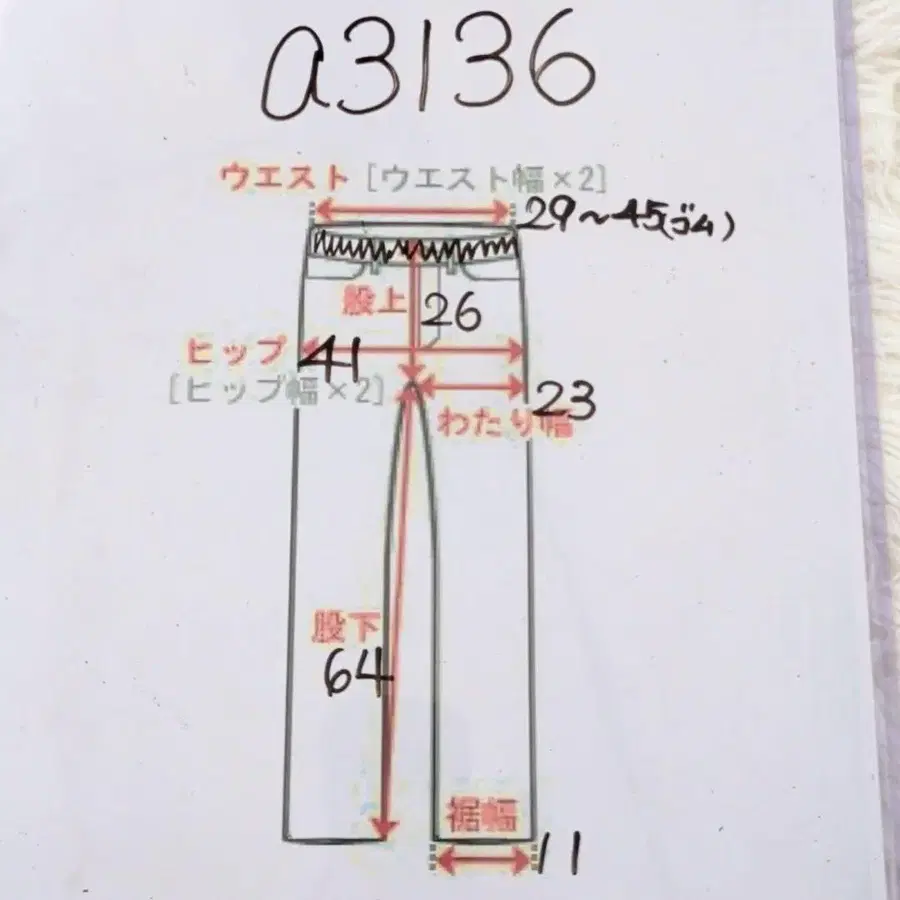 a3136
ウエスト [ウエスト幅×2]
29〜45(ゴム)
股上 26
ヒップ 41
[ヒップ幅×2]
23
わたり幅
股下
64
裾幅
11